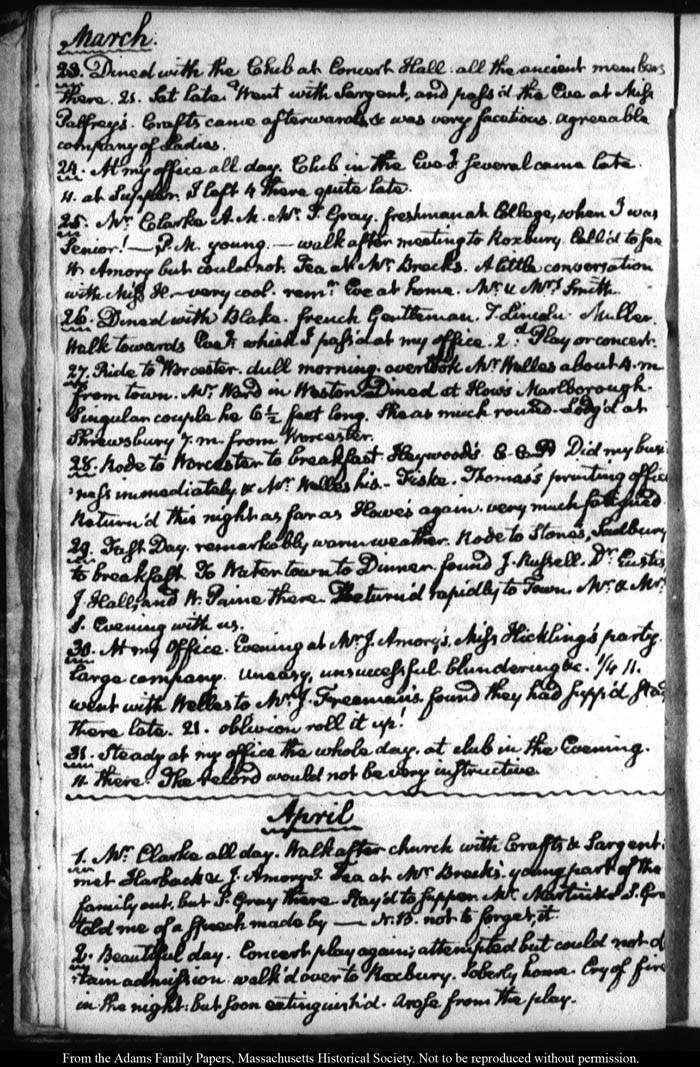 March.
23. Dined with the Club at Concert Hall. all the ancient members
there. 21. Set late. Went with Sargent, and pass'd the Eve at Miss
Palfrey's. Crafts came afterwards & was very facetious. agreeable
company of Ladies.
24. At my office all day. Club in the Eveg. several came late.
11. at Supper. I left 4 there quite late.
25. Mr. Clarke A.M. Mr. T. Gray. freshman at College, when I was
Senior! — P.M. young. — walk after meeting to Roxbury. Call'd to see
Amory but could not. Tea at Mr. Brecks. A little conversation
with Miss H. — very cool. remr. Eve at home. Mr. & Mrs. Smith.
26. Dined with Blake. french Gentleman. T. Lincoln. Muller.
Walk towards Eveg. which I pass'd at my office. 2d. Play or concert.
27. Ride to Worcester. dull morning. overtook Mr. Welles about 4. m
from town. Mr. Ward in Weston. Dined at How's Marlborough.
Singular couple he 6½ feet long. She as much round. Lodg'd at
Shrewsbury 7. m. from Worcester.
28. Rode to Worcester to breakfast. Heywood's. Did my busi
ness immediately. & Mr. Welles his. — Fiske. Thomas's printing office
Return'd this night as far as Howe's again. very much fatigued
29. Fast Day. remarkably warm weather. Rode to Stone's, Sudbury
to breakfast. To Watertown to Dinner. found J. Russell. Dr. Eustis
J. Hall, and W. Paine there. Return'd rapidly to Town. Mr. & Mrs.
S. Evening with us.
30. At my Office. Evening at Mr. J. Amory's. Miss Hickling's party.
Large company. uneasy, unsuccessful blundering &c. ¼ 11.
went with Welles to Mr. J. Freeman's. found they had supp'd. Stay
there late. 21. oblivion roll it up!
31. Steady at my office the whole day. at club in the Evening.
11. there. The record would not be very instructive.
April
1. Mr. Clarke all day. Walk after church with Crafts & Sargent.
met Harback & J. Amory. Tea at Mr. Brecks. young part of the
family out, but T. Gray there. Stay'd to supper. Mr. Martinike S. Gre
told me of a speech made by — N.B. not to forget it
2. Beautiful day. Concert play again; attempted but could not ob
:tain admission. walk'd over to Roxbury. Soberly home. Cry of fire
in the night. but soon extinguish'd. Arose from the play.
From the Adams Family Papers, Massachusetts Historical Society. Not to be reproduced without permission.